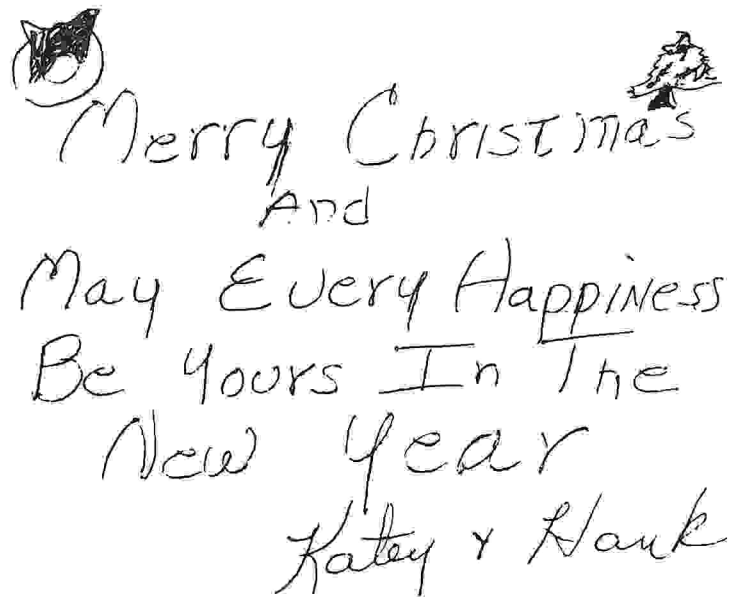 Merry Christmas
And
May Every Happiness
Be Yours In The
New Year
Katey & Hank